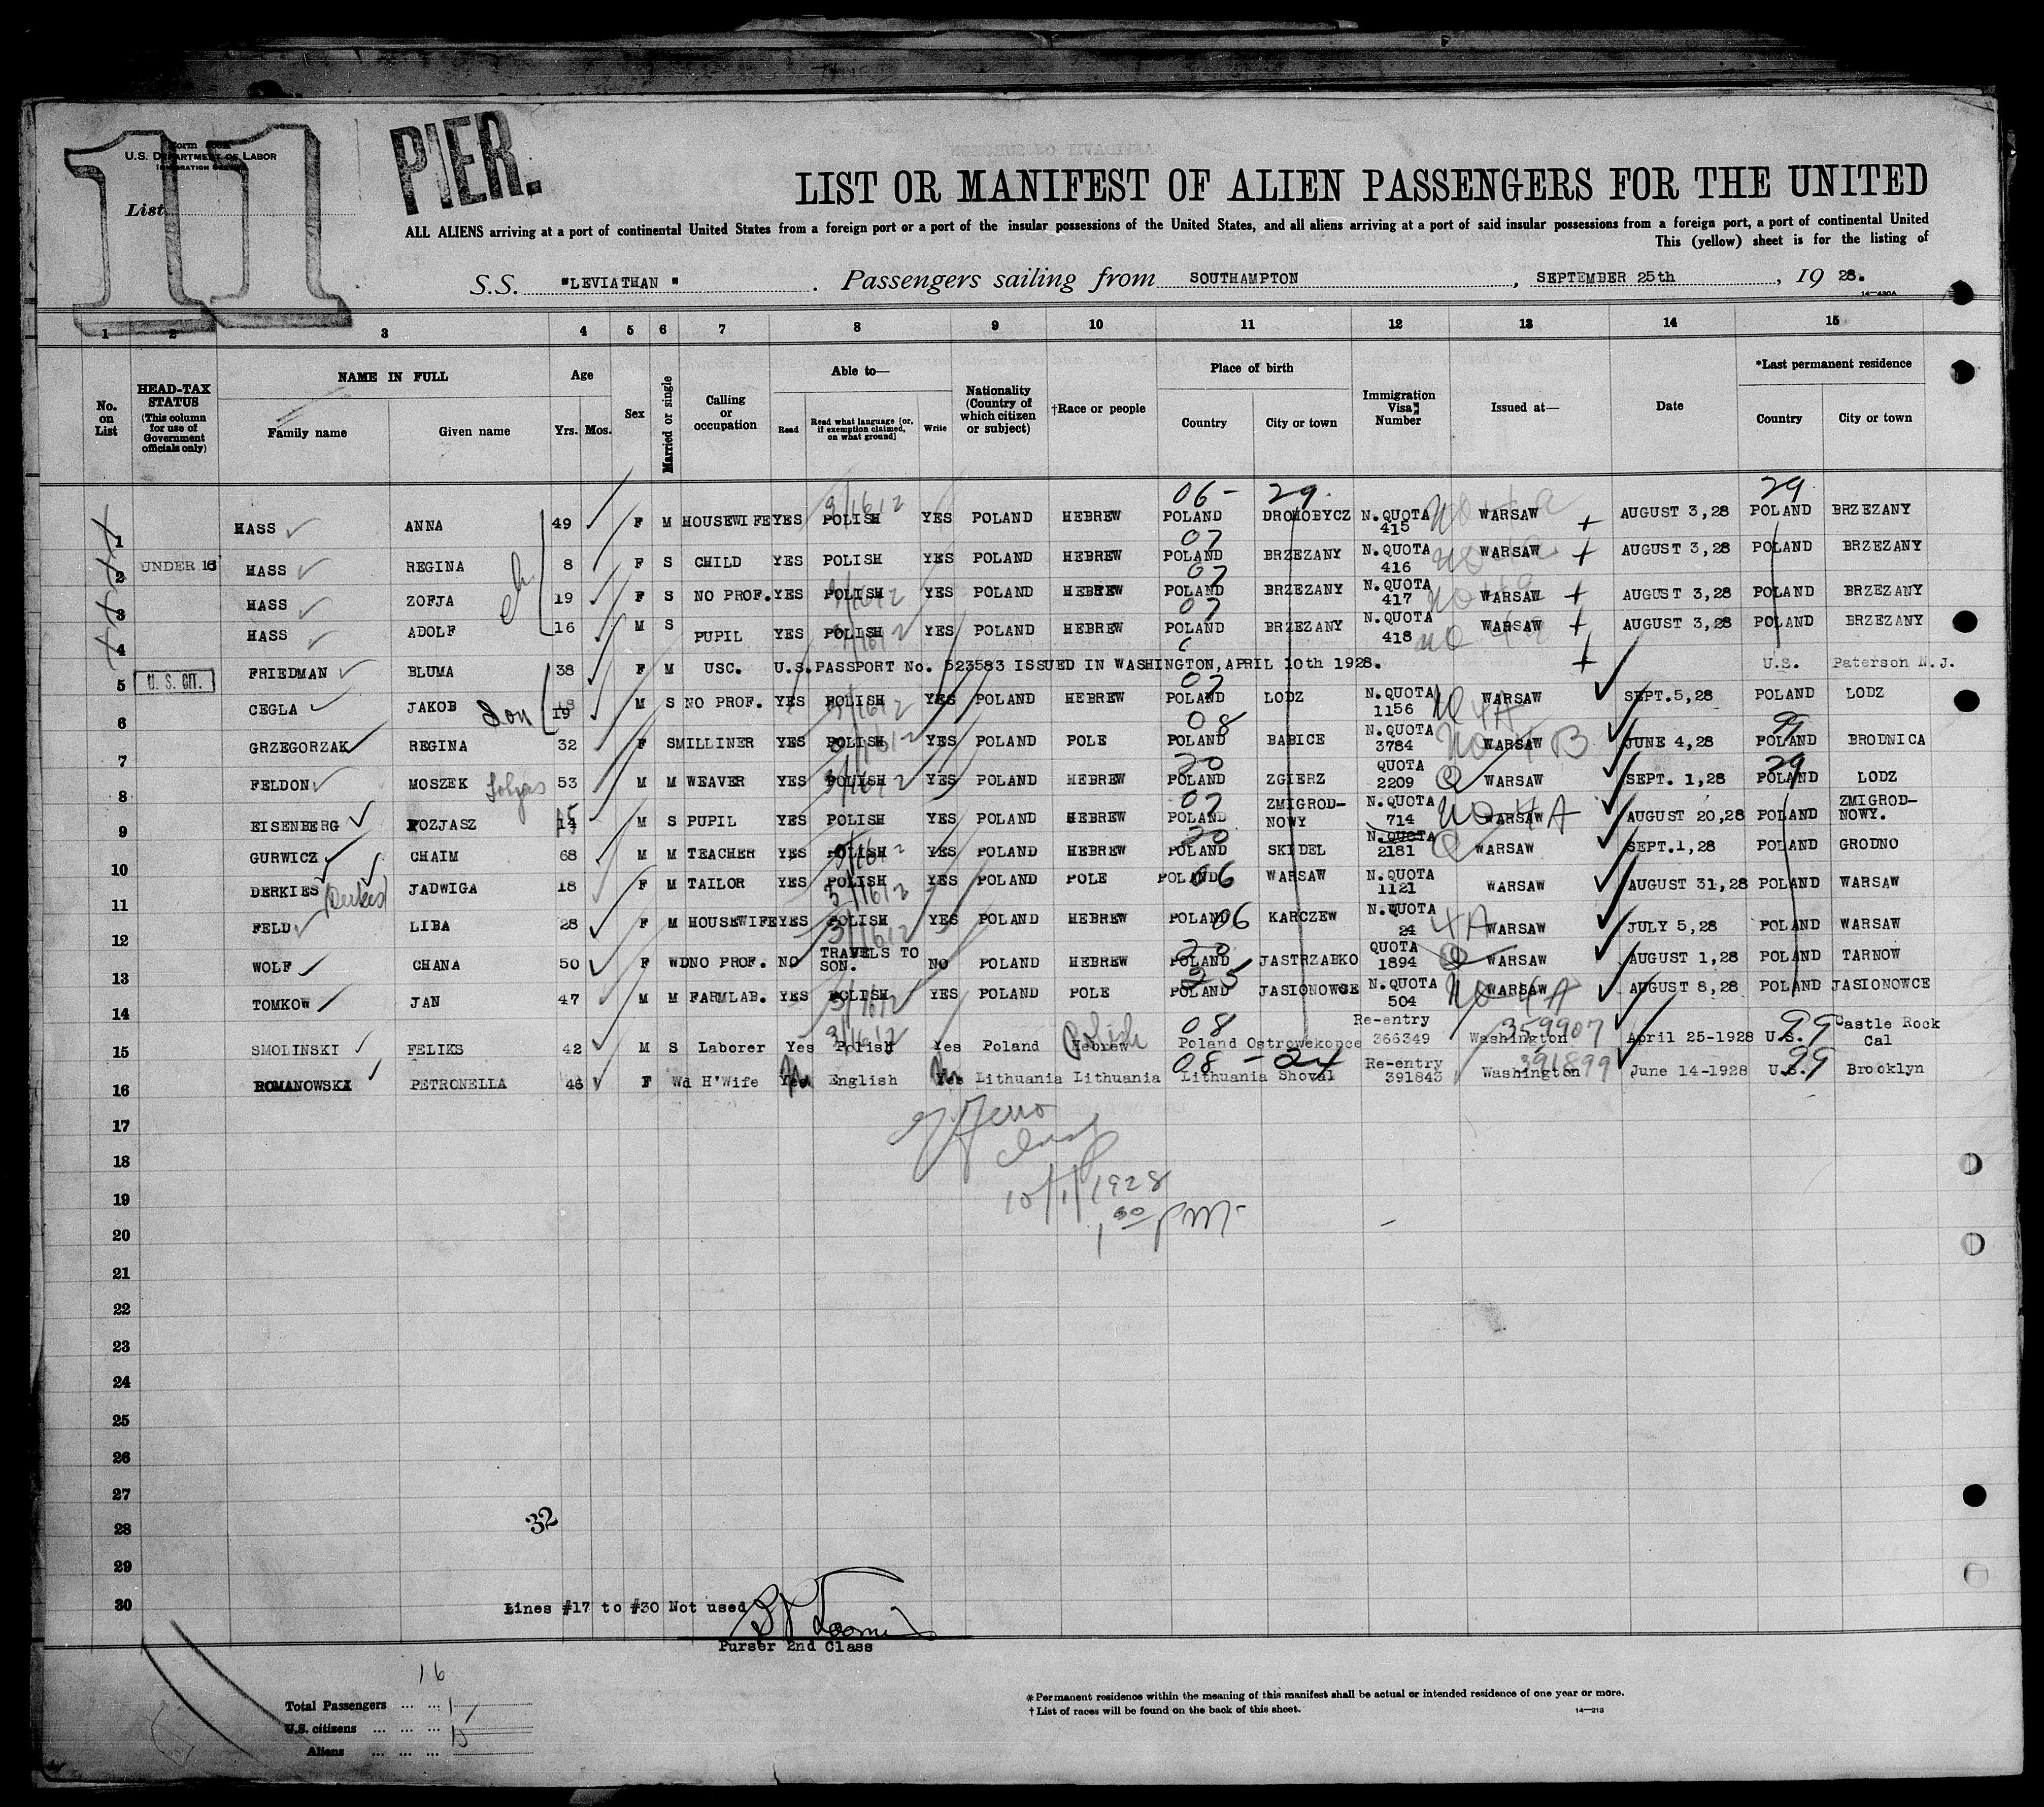 11
Form
U.S. DEPARTMENT OF LABOR
IMMIGRATION
List
PIER.
LIST OR MANIFEST OF ALIEN PASSENGERS FOR THE UNITED
ALL ALIENS arriving at a port of continental United States from a foreign port or a port of the insular possessions of the United States, and all aliens arriving at a port of said insular possessions from a foreign port, a port of continental United
This (yellow) sheet is for the listing of
S.S. "LEVIATHAN" . Passengers sailing from SOUTHAMPTON , SEPTEMBER 25th , 19 28.
14—430A
1 2 3 4 5 6 7 8 9 10 11 12 13 14 15
No. on List
HEAD-TAX STATUS (This column for use of Government officials only)
NAME IN FULL
Family name Given name
Age
Yrs. Mos.
Sex
Married or single
Calling or occupation
Able to—
Read Read what language [or, if exemption claimed, on what ground] Write
Nationality (Country of which citizen or subject)
†Race or people
Place of birth
Country City or town
Immigration Visa Number
Issued at—
Date
*Last permanent residence
Country City or town
06 - 29. 29
1 HASS ANNA 49 F M HOUSEWIFE YES POLISH YES POLAND HEBREW POLAND DROHOBYCZ N.QUOTA 415 WARSAW AUGUST 3,28 POLAND BRZEZANY
2 UNDER 16 HASS REGINA 8 F S CHILD YES POLISH YES POLAND HEBREW 07 POLAND BRZEZANY N.QUOTA 416 WARSAW AUGUST 3,28 POLAND BRZEZANY
3 HASS ZOFJA 19 F S NO PROF. YES POLISH YES POLAND HEBREW 07 POLAND BRZEZANY N.QUOTA 417 WARSAW AUGUST 3,28 POLAND BRZEZANY
4 HASS ADOLF 16 M S PUPIL YES POLISH YES POLAND HEBREW 07 POLAND BRZEZANY N.QUOTA 418 WARSAW AUGUST 3,28 POLAND BRZEZANY
5 U. S. CIT. FRIEDMAN BLUMA 38 F M USC. U.S.PASSPORT No. 523583 ISSUED IN WASHINGTON,APRIL 10th 1928. U.S. Paterson N.J.
6 CEGLA JAKOB Son 19 M S NO PROF. YES POLISH YES POLAND HEBREW 07 POLAND LODZ N.QUOTA 1156 4A WARSAW SEPT.5,28 POLAND LODZ
7 GRZEGORZAK REGINA 32 F S MILLINER YES POLISH YES POLAND POLE 08 POLAND BABICE N.QUOTA 3784 NO 4B WARSAW JUNE 4,28 99 POLAND BRODNICA
8 FELDON MOSZEK 53 M M WEAVER YES POLISH YES POLAND HEBREW 20 POLAND ZGIERZ QUOTA 2209 Q WARSAW SEPT. 1,28 29 POLAND LODZ
9 EISENBERG TOZJASZ M S PUPIL YES POLISH YES POLAND HEBREW 07 POLAND ZMIGROD-NOWY N.QUOTA 714 NO 4A WARSAW AUGUST 20,28 POLAND ZMIGROD-NOWY.
10 GURWICZ CHAIM 68 M M TEACHER YES POLISH YES POLAND HEBREW 20 POLAND SKIDEL N.QUOTA 2181 Q WARSAW SEPT.1,28 POLAND GRODNO
11 DERKIES JADWIGA 18 F M TAILOR YES POLISH YES POLAND POLE POLAND 06 WARSAW N.QUOTA 1121 WARSAW AUGUST 31,28 POLAND WARSAW
12 FELD LIBA 28 F M HOUSEWIFE YES POLISH YES POLAND HEBREW POLAND 06 KARCZEW N.QUOTA 24 4A WARSAW JULY 5,28 POLAND WARSAW
13 WOLF CHANA 50 F WD NO PROF. NO TRAVELS TO SON. NO POLAND HEBREW 20 POLAND JASTRZABKO QUOTA 1894 Q WARSAW AUGUST 1,28 POLAND TARNOW
14 TOMKOW JAN 47 M M FARMLAB. YES POLISH YES POLAND POLE 25 POLAND JASIONOWCE N.QUOTA 504 NO 4A WARSAW AUGUST 8,28 POLAND JASIONOWCE
15 SMOLINSKI FELIKS 42 M S Laborer Yes Polish Yes Poland Hebrew Polish 08 Poland Ostrowekopce Re-entry 366349 359907 Washington April 25-1928 U.S. 99 Castle Rock Cal
16 ROMANOWSKI PETRONELLA 46 F Wd H'Wife Yes English Yes Lithuania Lithuania 08 - 24 Lithuania Shoval Re-entry 391843 391899 Washington June 14-1928 U.S. 99 Brooklyn
17
18
10/1/1928
19
1 30 PM
20
21
22
23
24
25
26
27
32
28
29
30
Lines #17 to #30 Not used
Purser 2nd Class
16
Total Passengers ... ... 1
U.S. citizens ... ... ... 15
Aliens ... ... ...
* Permanent residence within the meaning of this manifest shall be actual or intended residence of one year or more.
† List of races will be found on the back of this sheet.
14—213